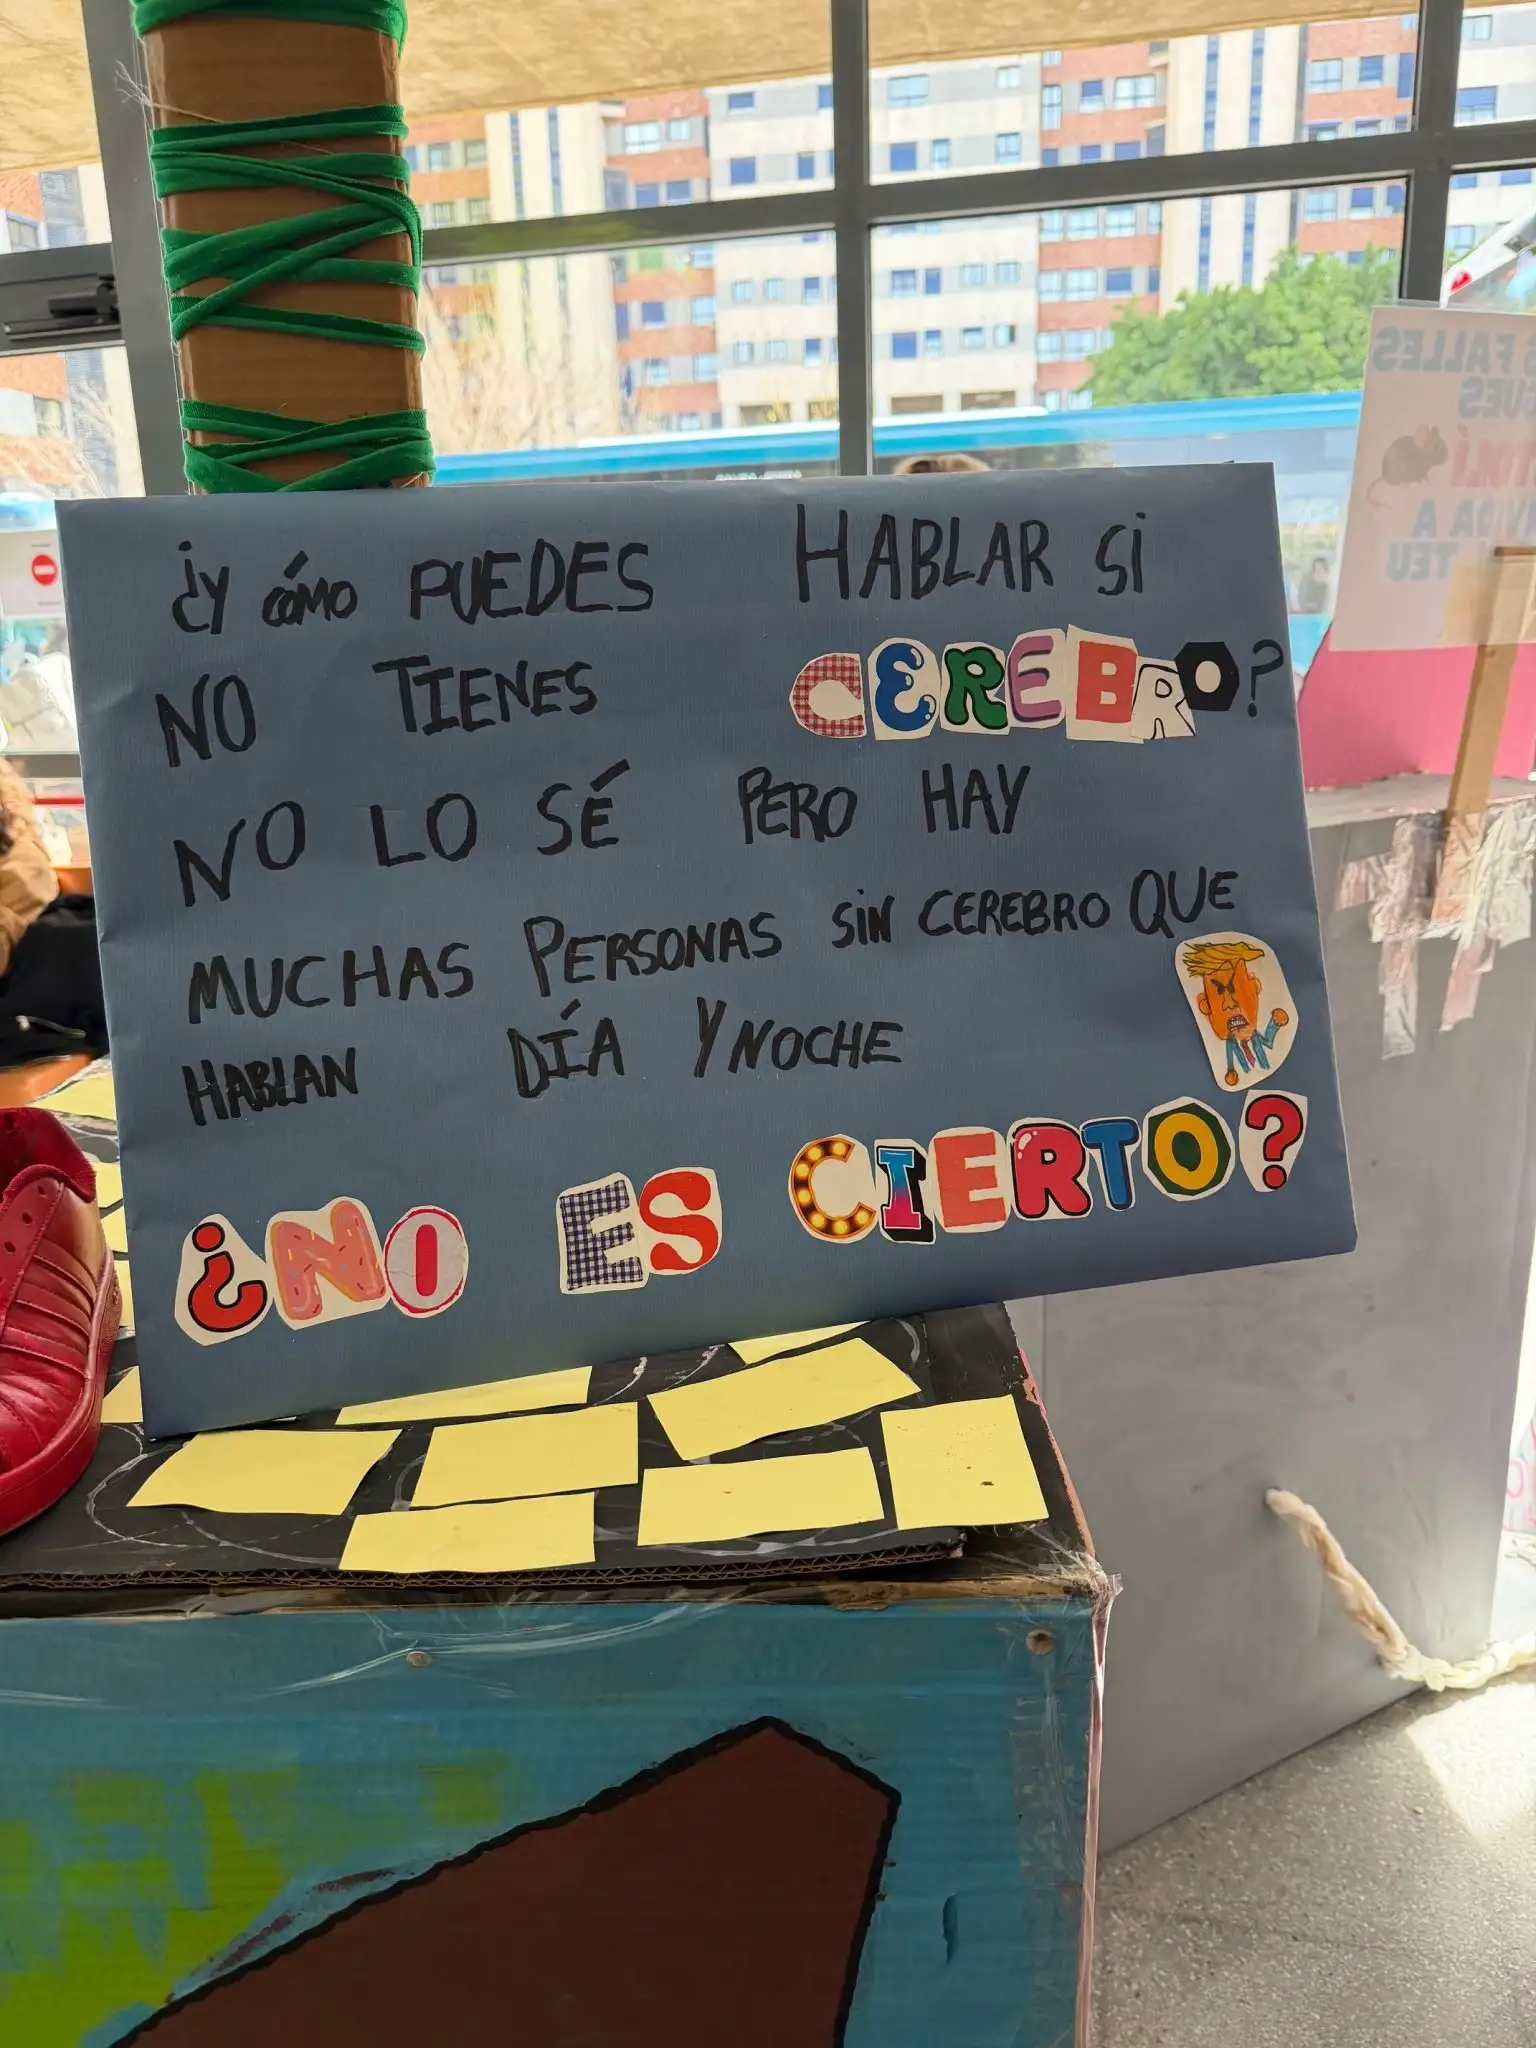 ¿Y CÓMO PUEDES HABLAR SI
NO TIENES CEREBRO?
NO LO SÉ PERO HAY
MUCHAS PERSONAS SIN CEREBRO QUE
HABLAN DÍA Y NOCHE
¿NO ES CIERTO?
FALLES
A
TEU